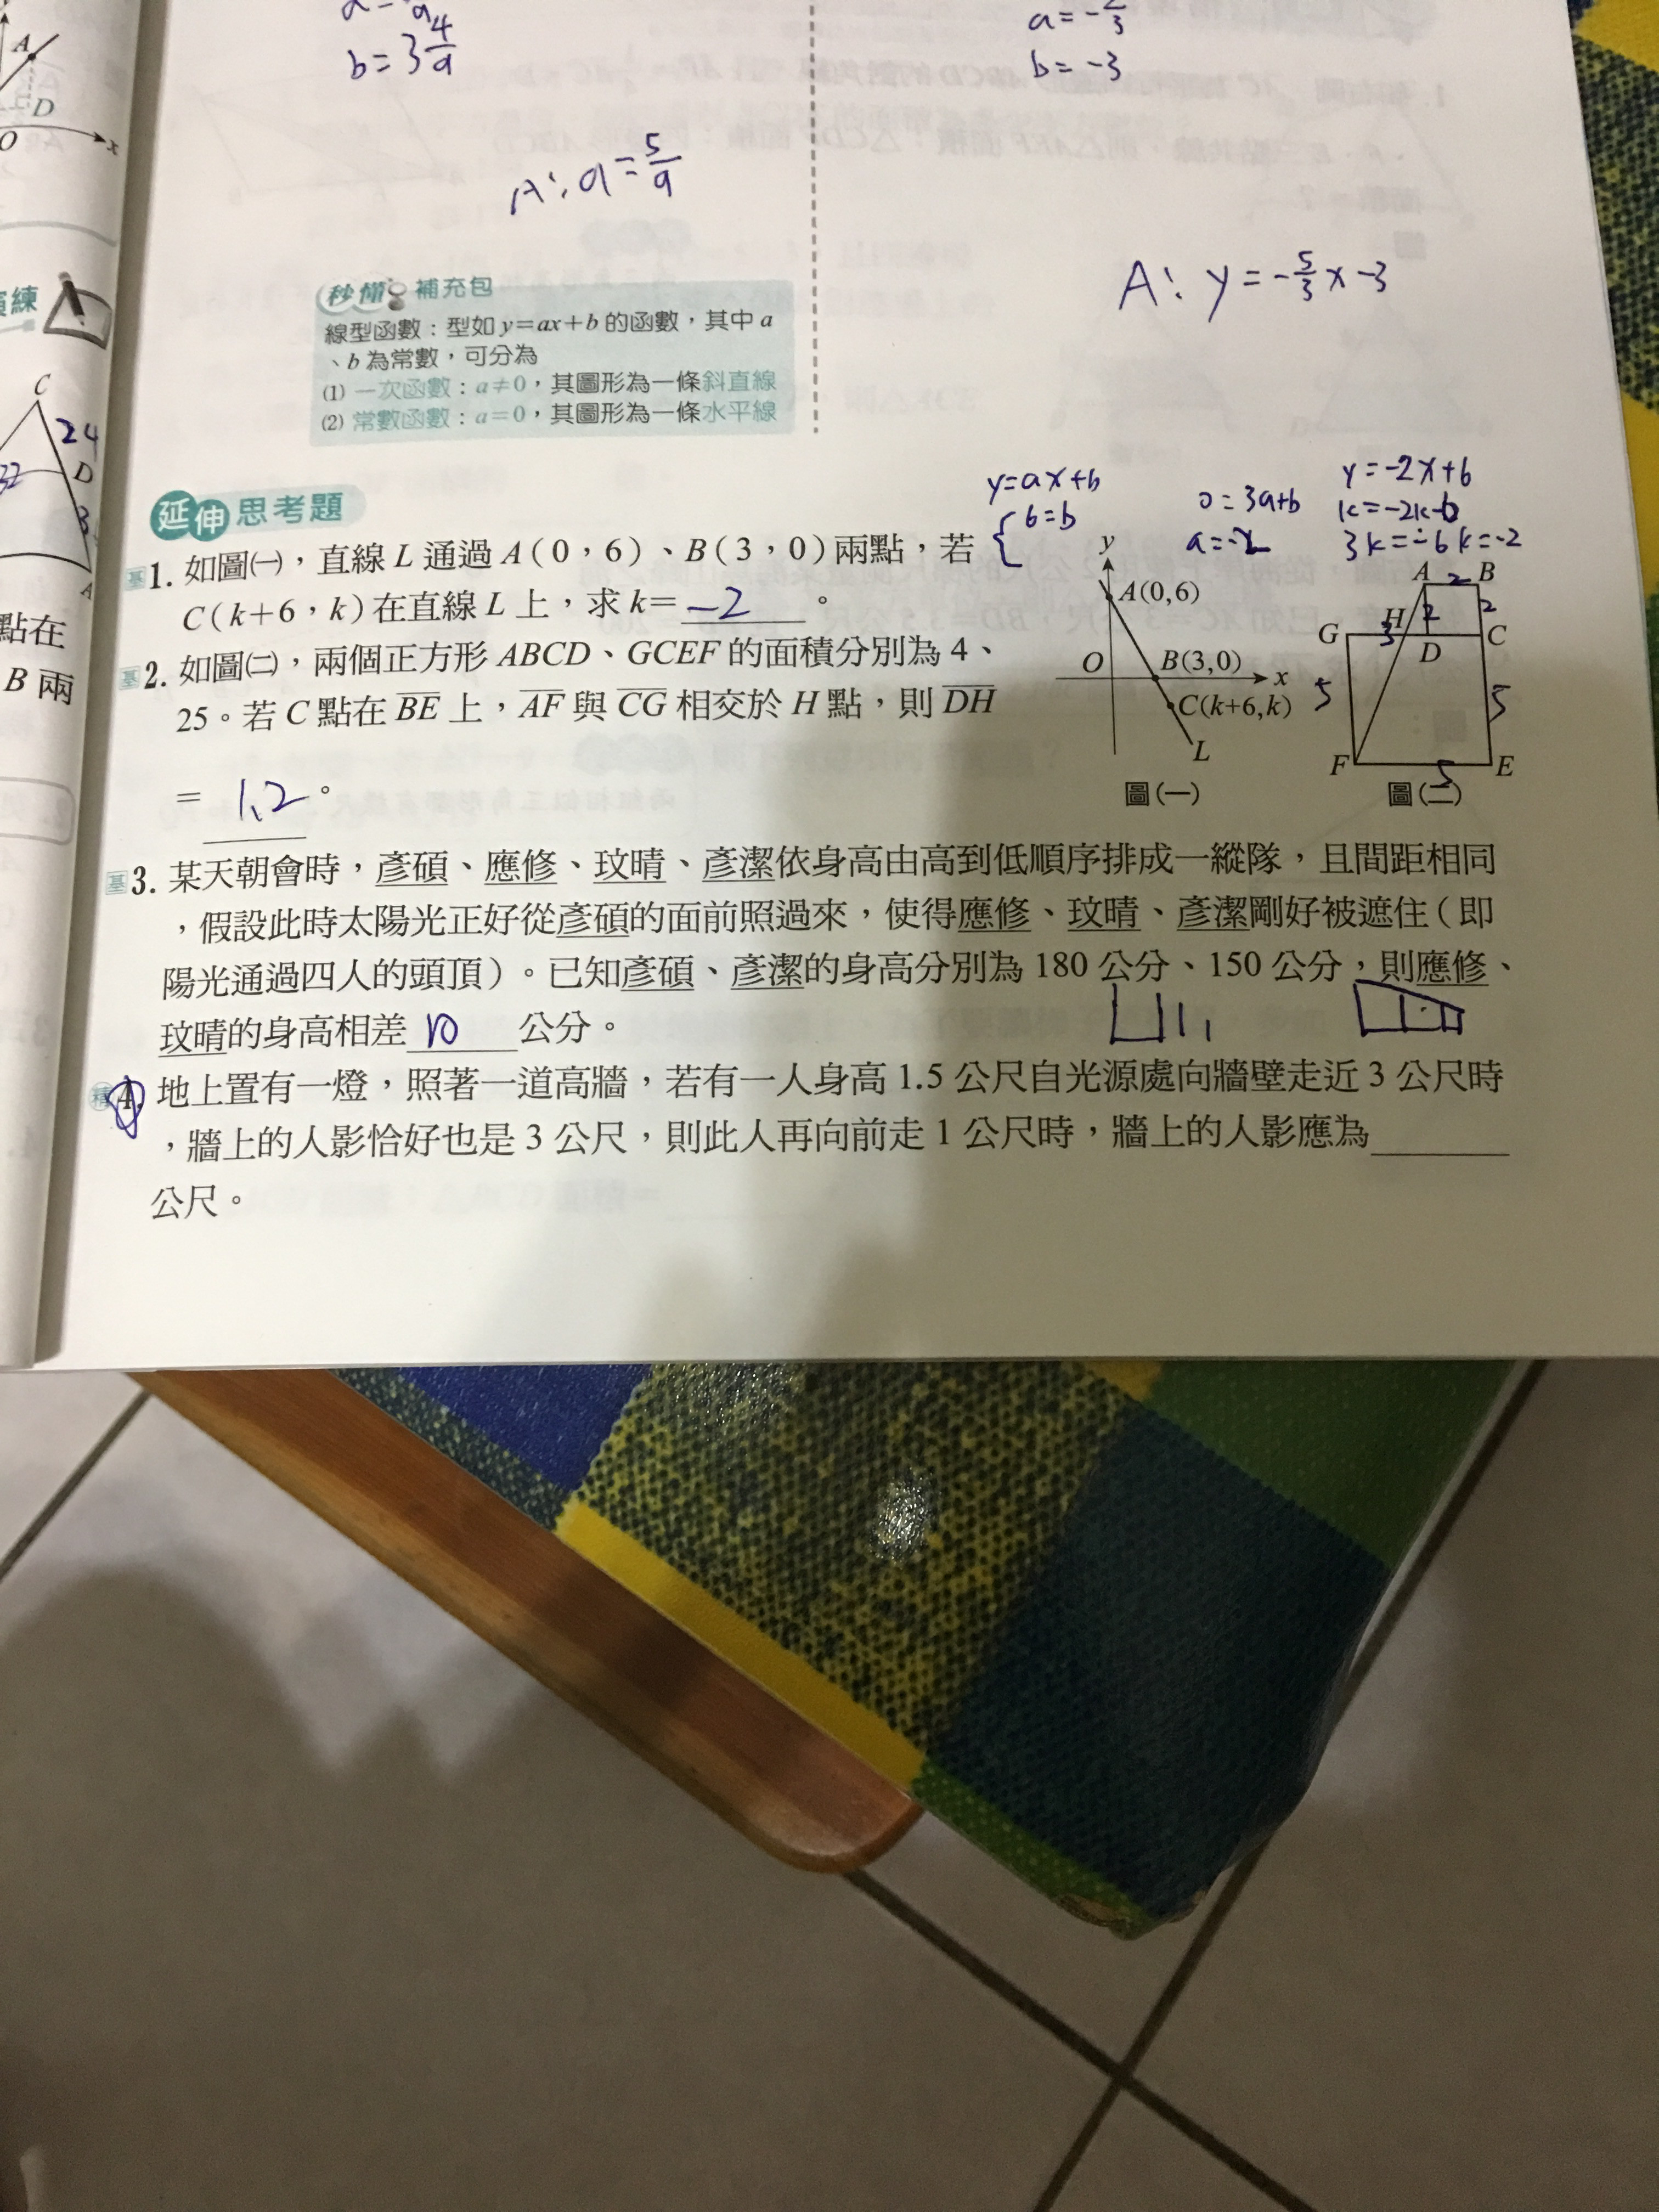 b=3 4/9
a=-2/3
b=-3
A
D
O
x
A:a=5/9
A:y=-5/3x-3
秒懂 補充包
線型函數：型如y=ax+b的函數，其中a
、b為常數，可分為
(1) 一次函數：a≠0，其圖形為一條斜直線
(2) 常數函數：a=0，其圖形為一條水平線
演練
C
24
32
D
A
點在
B兩
延伸思考題
y=ax+b
6=b
0=3a+b
a=-2
y=-2x+6
k=-2k-6
3k=-6 k=-2
基1. 如圖㈠，直線L通過A(0，6)、B(3，0)兩點，若
C(k+6，k)在直線L上，求k= -2 。
基2. 如圖㈡，兩個正方形ABCD、GCEF的面積分別為4、
25。若C點在BE上，AF與CG相交於H點，則DH
= 1.2 。
y
A(0,6)
O
B(3,0)
x
C(k+6,k)
L
圖(一)
A 2 B
H 2 2
G 3 C
D
5 5
F 5 E
圖(二)
基3. 某天朝會時，彥碩、應修、玟晴、彥潔依身高由高到低順序排成一縱隊，且間距相同
，假設此時太陽光正好從彥碩的面前照過來，使得應修、玟晴、彥潔剛好被遮住（即
陽光通過四人的頭頂）。已知彥碩、彥潔的身高分別為180公分、150公分，則應修、
玟晴的身高相差 10 公分。
精4. 地上置有一燈，照著一道高牆，若有一人身高1.5公尺自光源處向牆壁走近3公尺時
，牆上的人影恰好也是3公尺，則此人再向前走1公尺時，牆上的人影應為
公尺。